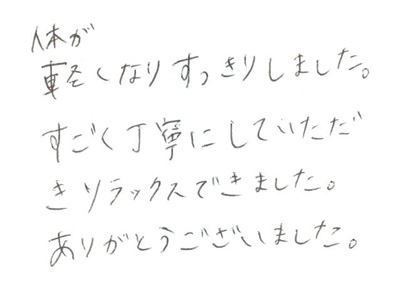 体が
軽くなりすっきりしました。
すごく丁寧にしていただ
きリラックスできました。
ありがとうございました。